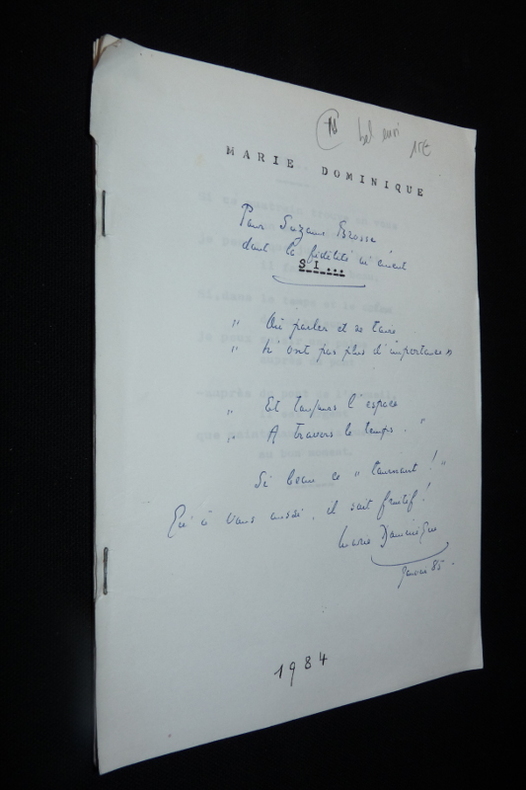 bel envoi 15€
MARIE DOMINIQUE
Pour Suzanne Brosse
dont la fidélité m'émeut
SI...
" Où parler et se taire
" N'ont pas plus d'importance »
" Et toujours l'espace
" A travers le temps. "
Si beau ce " tournant ! "
Qu'à vous aussi, il soit fructif !
Marie Dominique
Janvier 85.
1984